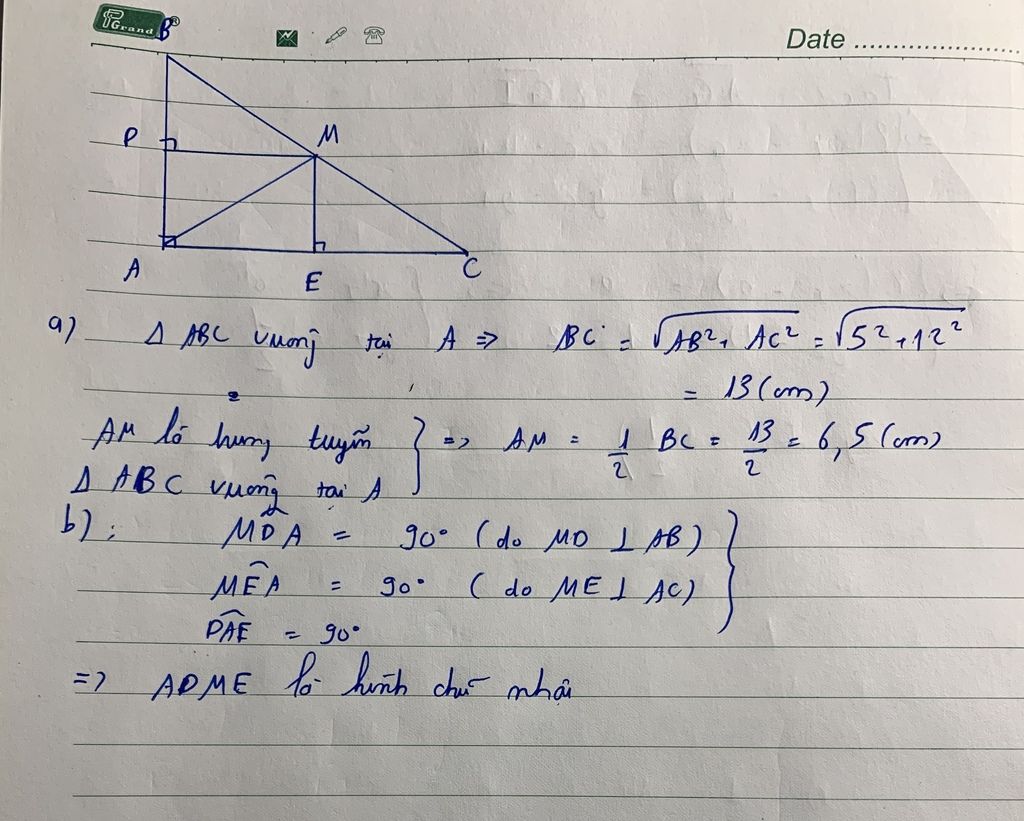 PGrand®
Date
B
P
M
A
E
C
a) Δ ABC vuông tại A => BC = √AB² + AC² = √5² + 12²
= 13 (cm)
AM là trung tuyến
Δ ABC vuông tại A } => AM = 1/2 BC = 13/2 = 6,5 (cm)
b):
MDA = 90° (do MD ⊥ AB)
MEA = 90° (do ME ⊥ AC)
DAE = 90°
=> ADME là hình chữ nhật